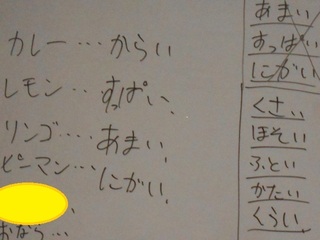 カレー…からい
レモン…すっぱい
リンゴ…あまい
ピーマン…にがい
おなら…
あまい
すっぱい
にがい
くさい
ほそい
ふとい
かたい
くらい